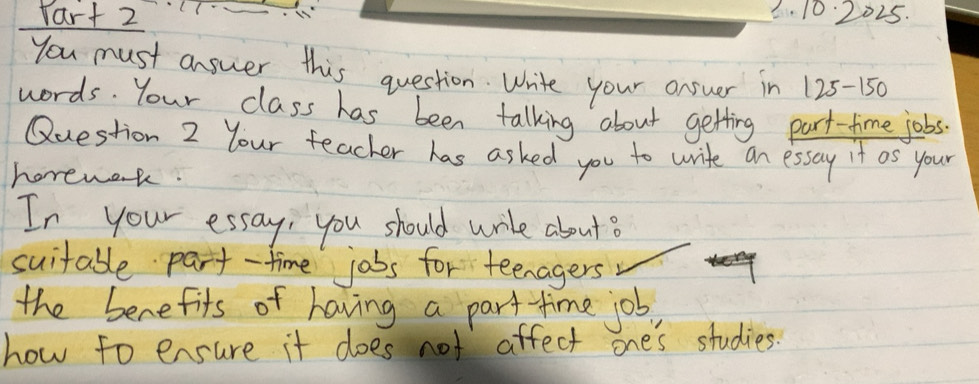 Part 2
2.10.2025.
You must answer this question. Write your answer in 125-150
words. Your class has been talking about getting part-time jobs.
Question 2 Your teacher has asked you to write an essay it as your
homework.
In your essay, you should write about:
suitable part-time jobs for teenagers
the benefits of having a part-time job,
how to ensure it does not affect one's studies.